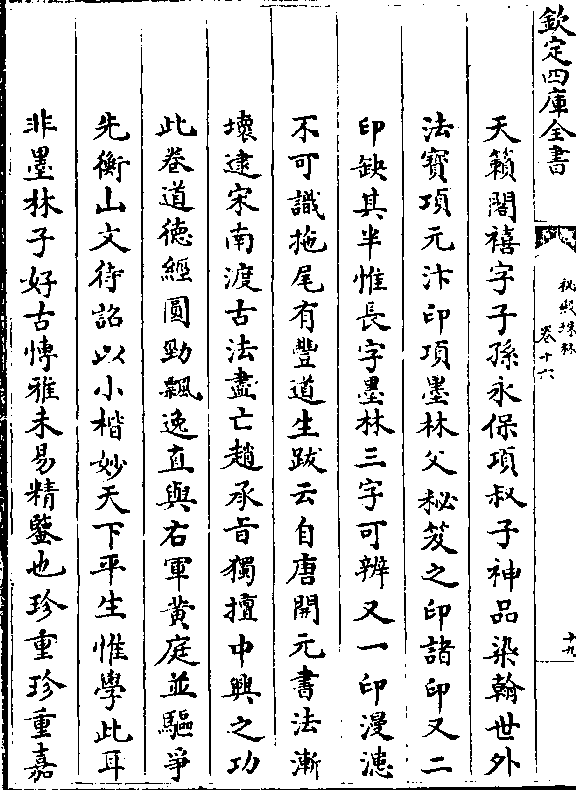 欽定四庫全書
秘殿珠林
卷十六
十九
天籟閣禧字子孫永保項叔子神品染翰世外
法寶項元汴印項墨林父秘笈之印諸印又二
印缺其半惟長字墨林三字可辨又一印漫漶
不可識拖尾有豐道生跋云自唐開元書法漸
壞逮宋南渡古法盡亡趙承旨獨擅中興之功
此卷道德經圓勁飄逸直與右軍黄庭並驅爭
先衡山文待詔以小楷妙天下平生惟學此耳
非墨林子好古愽雅未易精鑒也珍重珍重嘉